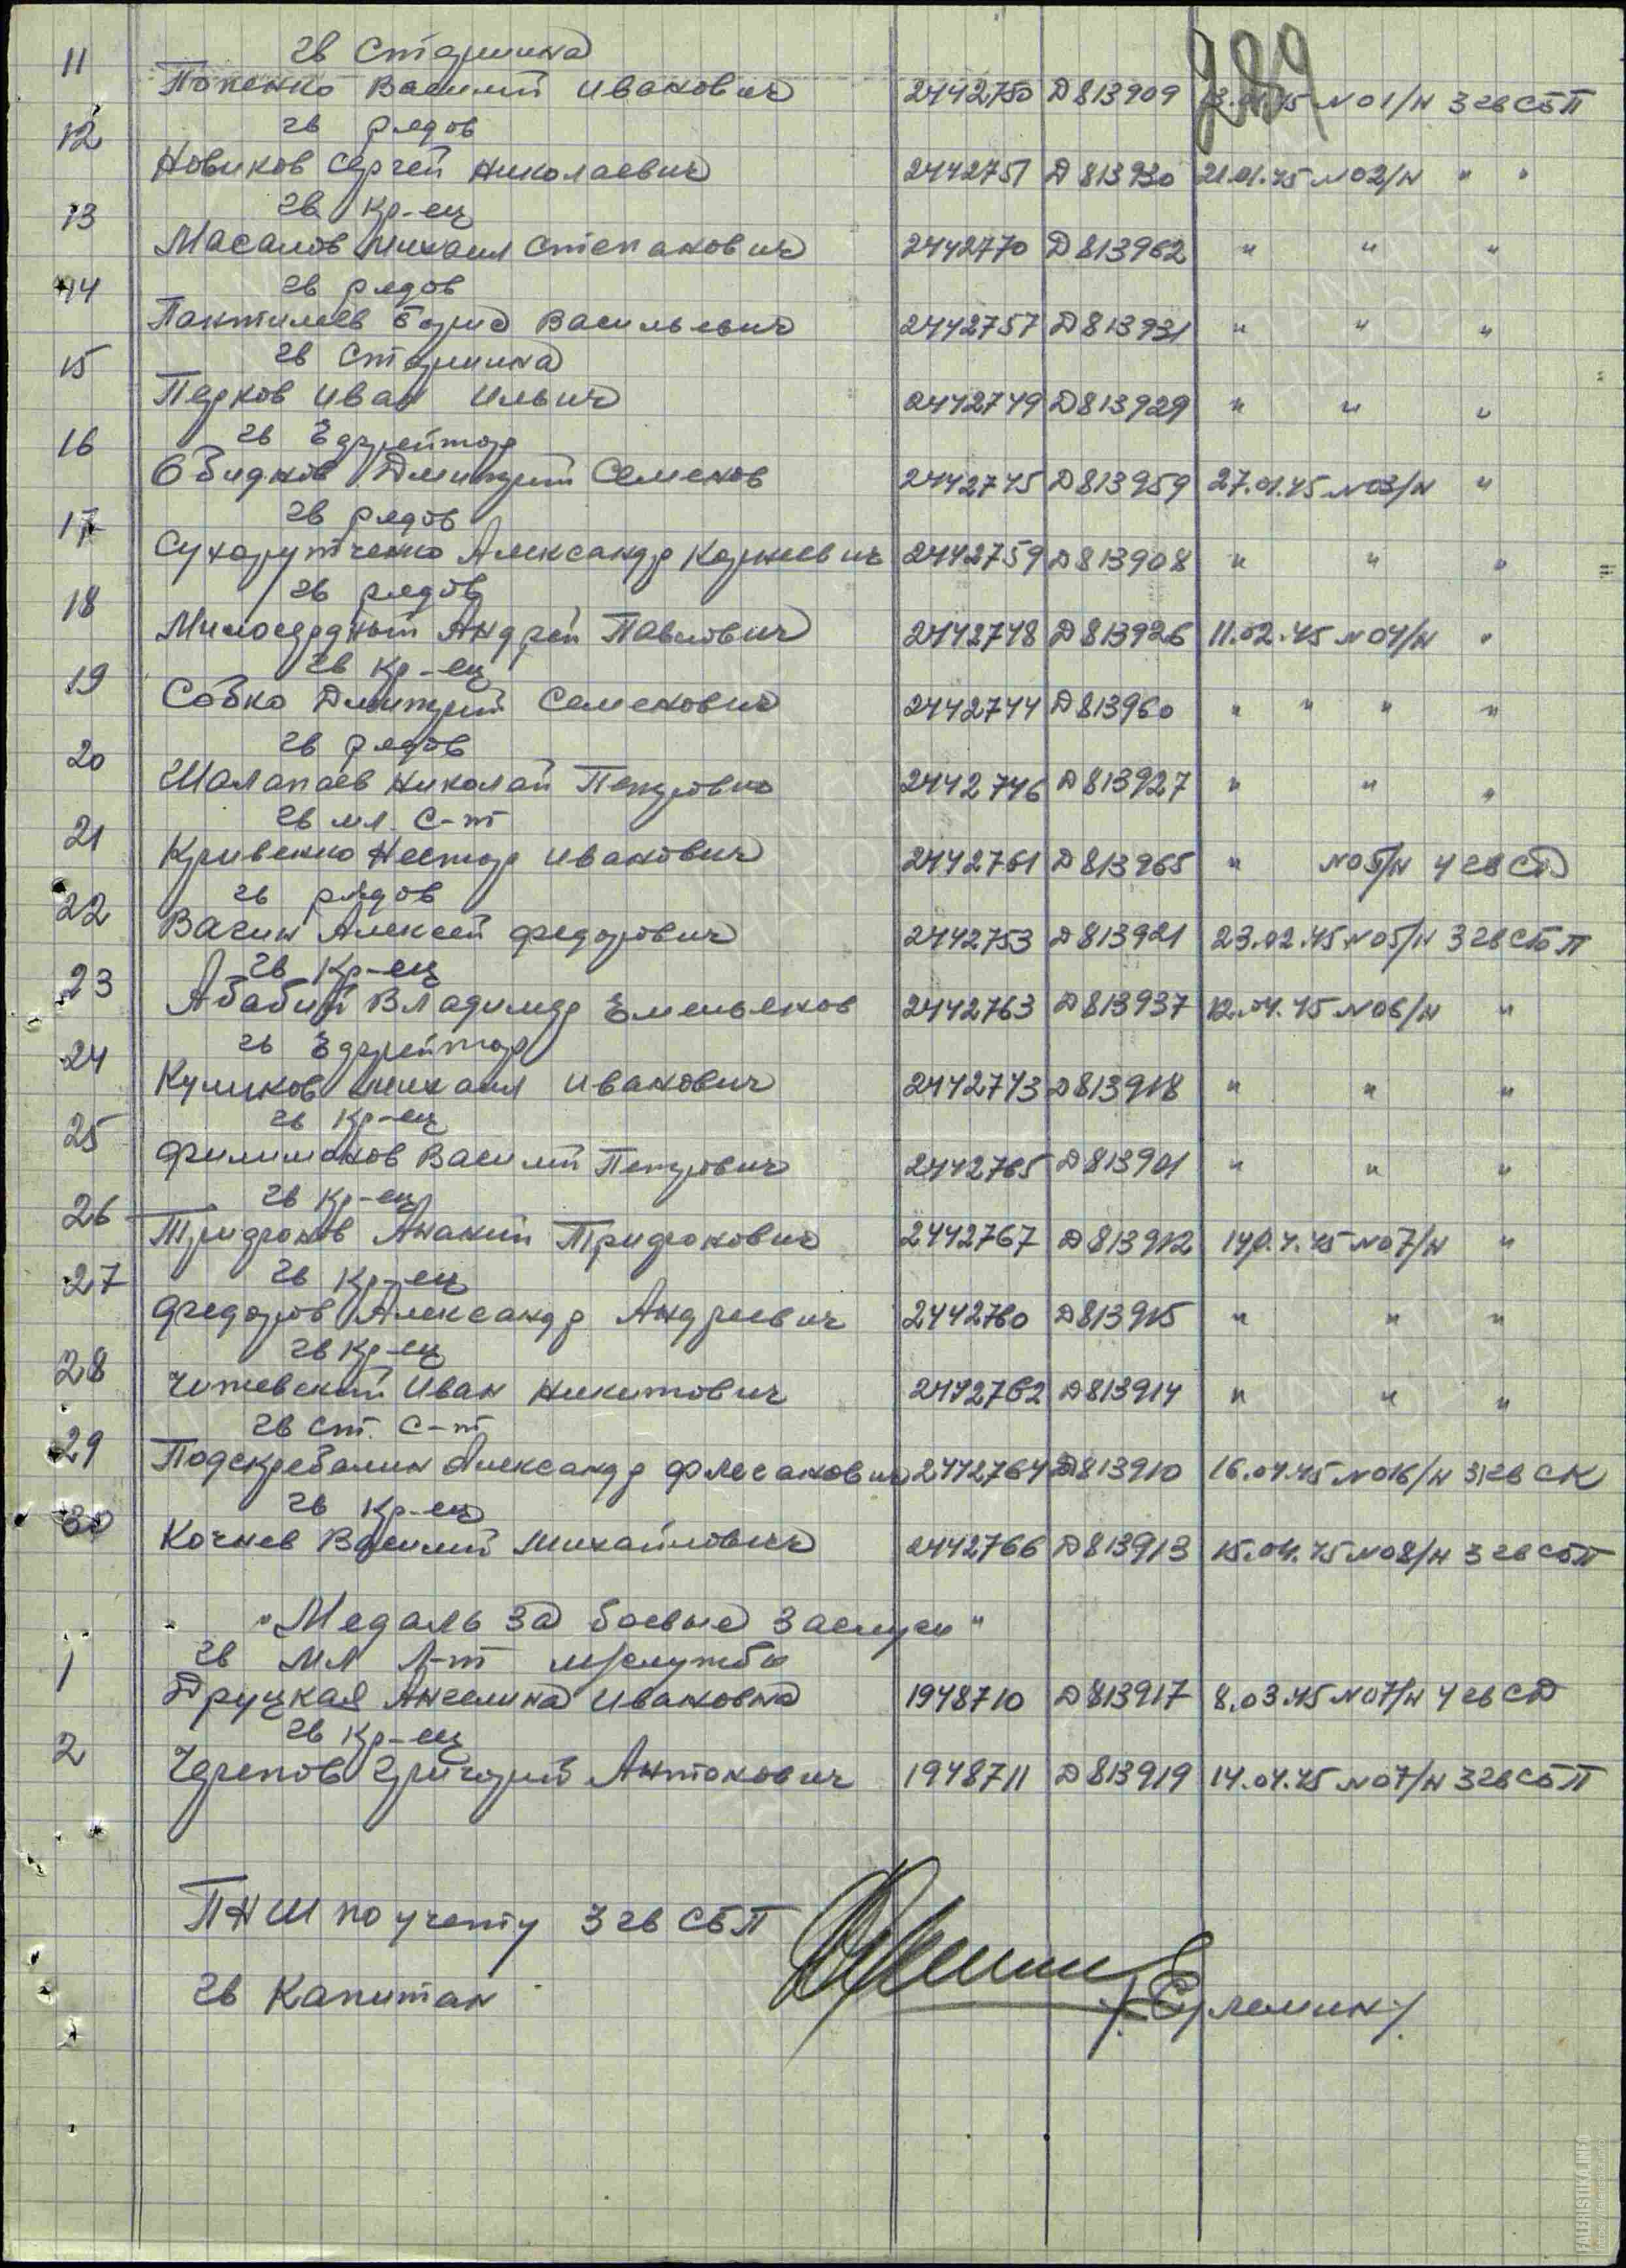 289
гв Старшина
11 Покенко Василий Иванович 2442750 Д813909 .45 №01/н 3 гв СбП
гв рядов
12 Новиков Сергей Николаевич 2442751 Д813930 21.01.45 №02/н " "
гв кр-ец
13 Масалов Михаил Степанович 2442770 Д813962 " " "
гв рядов
14 Пактилеев Борис Васильевич 2442757 Д813931 " " "
гв Старшина
15 Перков Иван Ильич 2442749 Д813929 " " "
гв Ефрейтор
16 Обидков Дмитрий Семенов 2442745 Д813959 27.01.45 №03/н "
гв рядов
17 Сухорутченко Александр Корнеевич 2442759 Д813908 " " "
гв рядов
18 Милосердный Андрей Павлович 2442748 Д813926 11.02.45 №04/н "
гв кр-ец
19 Собко Дмитрий Семенович 2442744 Д813960 " " " "
гв рядов
20 Шалапаев Николай Петрович 2442746 Д813927 " " "
гв мл. с-т
21 Кривенко Нестор Иванович 2442761 Д813965 " №05/н 4 гв СД
гв рядов
22 Вагин Алексей Федорович 2442753 Д813921 23.02.45 №05/н 3 гв СбП
гв кр-ец
23 Абабий Владимир Емельянов 2442763 Д813937 12.04.45 №06/н "
гв Ефрейтор
24 Куликов Михаил Иванович 2442743 Д813918 " " "
гв кр-ец
25 Филимонов Василий Петрович 2442765 Д813901 " " "
гв кр-ец
26 Трифонов Ананий Трифонович 2442767 Д813912 14.04.45 №07/н "
гв кр-ец
27 Федоров Александр Андреевич 2442760 Д813915 " " "
гв кр-ец
28 Чижевский Иван Никитович 2442762 Д813914 " " "
гв ст. с-т
29 Подскребалин Александр 2442764 Д813910 16.04.45 №016/н 31 гв СК
гв кр-ец
30 Кочнев Василий Михайлович 2442766 Д813913 15.04.45 №08/н 3 гв СбП
"Медаль за боевые заслуги"
гв мл л-т м/службы
1 Друцкая Ангелина Ивановна 1948710 Д813917 8.03.45 №07/н 4 гв СД
гв кр-ец
2 Черепов Григорий Антонович 1948711 Д813919 14.04.45 №07/н 3 гв СбП
ПНШ по учету 3 гв СбП
гв Капитан /Еремин/
FALERISTIKA.INFO